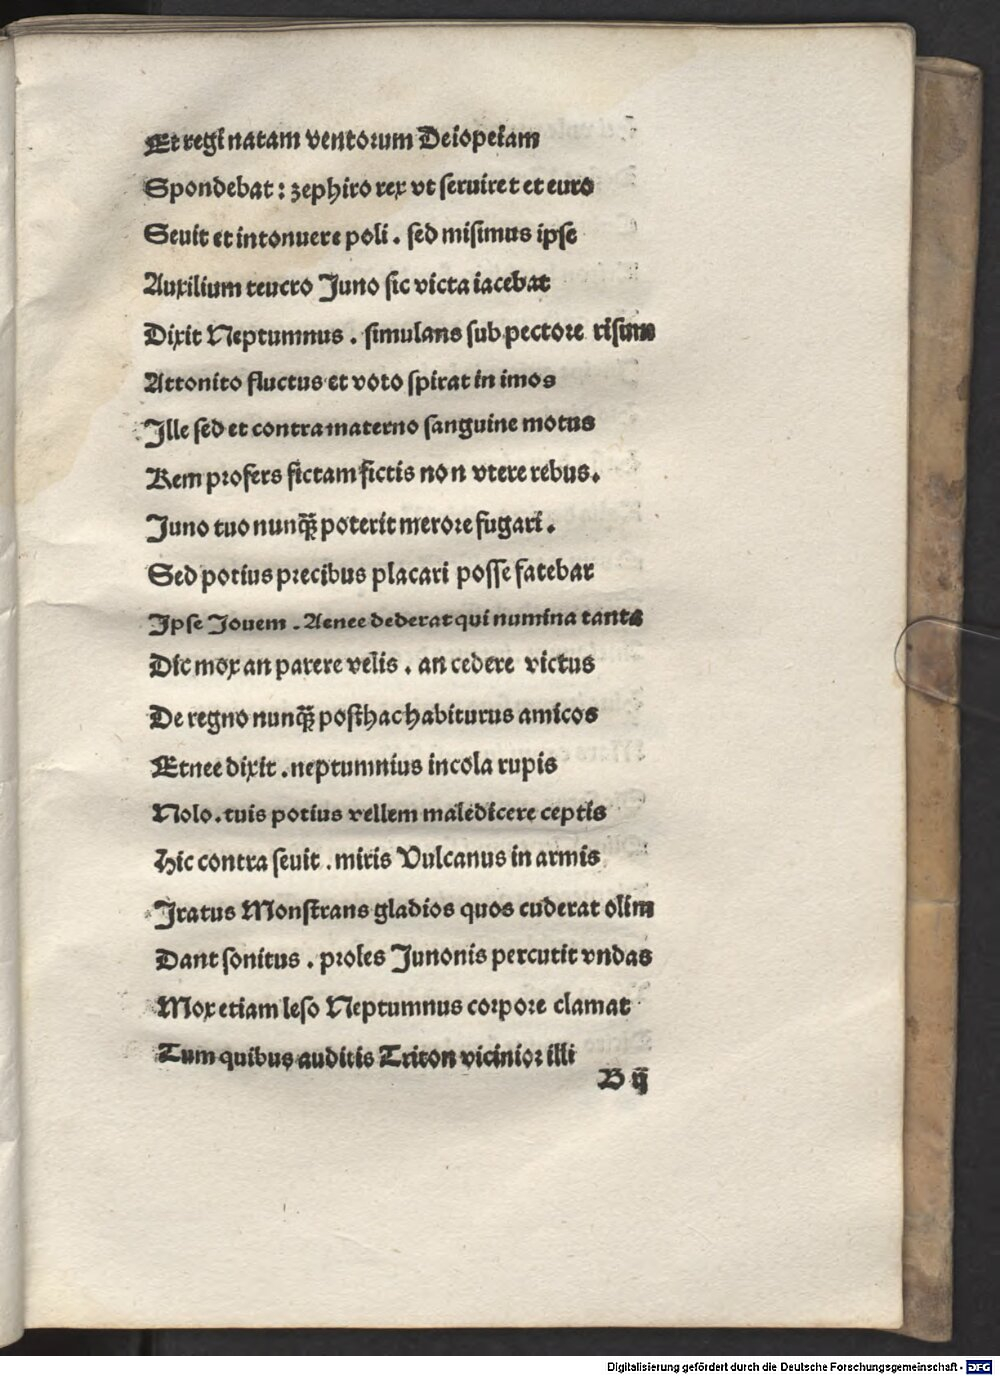 Et regi natam ventorum Deiopeiam
Spondebat : zephiro rex vt serviret et euro
Seuit et intonuere poli . sed misimus ipse
Auxilium teucro Juno sic victa iacebat
Dixit Neptumnus . simulans sub pectore risum
Attonito fluctus et voto spirat in imos
Ille sed et contra materno sanguine motus
Rem profers fictam fictis non vtere rebus.
Juno tuo nunq̄ꝫ poterit merore fugari .
Sed potius precibus placari posse fatebar
Ipse Jouem . Aenee dederat qui numina tanta
Dic mox an parere velis . an cedere victus
De regno nunq̄ꝫ posthac habiturus amicos
Etnee dixit . neptumnius incola rupis
Nolo . tuis potius vellem maledicere ceptis
Hic contra seuit . miris Vulcanus in armis
Iratus Monstrans gladios quos cuderat olim
Dant sonitus . proles Junonis percutit vndas
Mox etiam leso Neptumnus corpore clamat
Tum quibus auditis Triton vicinior illi
B ij
Digitalisierung gefördert durch die Deutsche Forschungsgemeinschaft - DFG